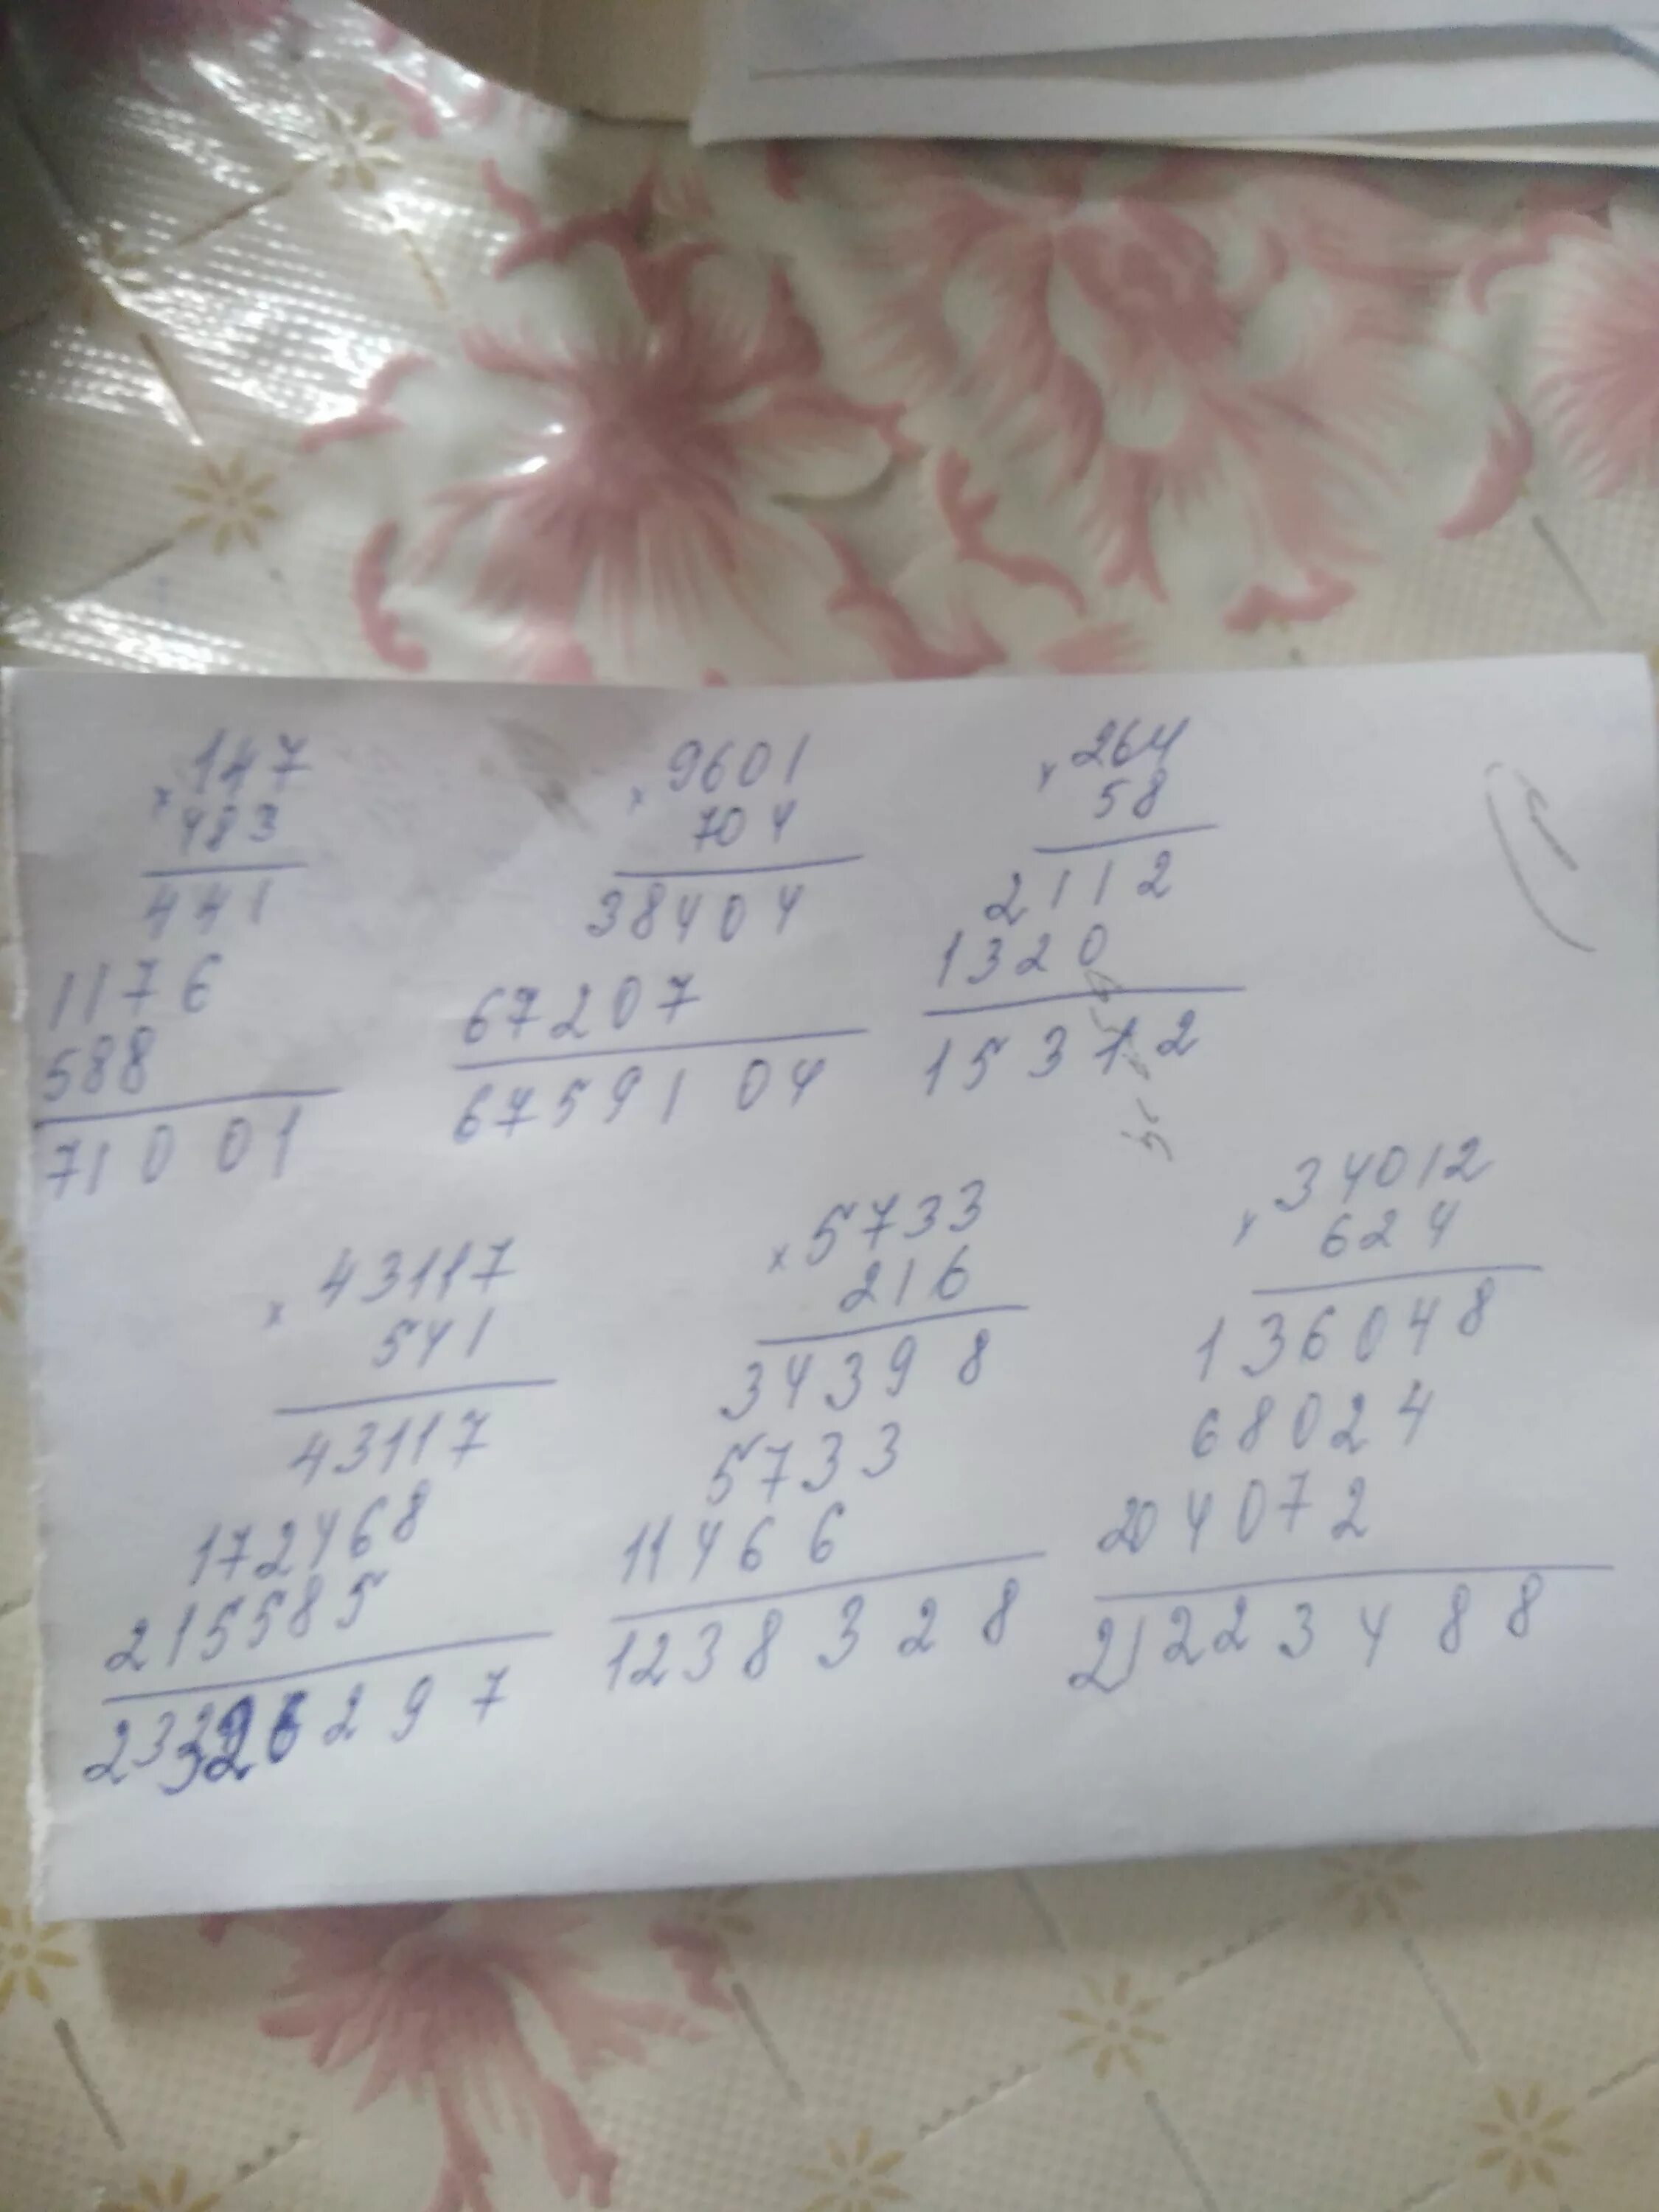 × 147
483
441
1176
588
71001
× 9601
704
38404
67207
6759104
× 264
58
2112
1320
15312
× 43117
541
43117
172468
215585
23326297
× 5733
216
34398
5733
11466
1238328
× 34012
624
136048
68024
204072
21223488